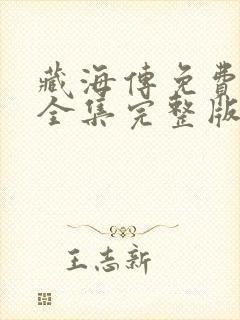 藏海傳免費
全集完整版
王志新